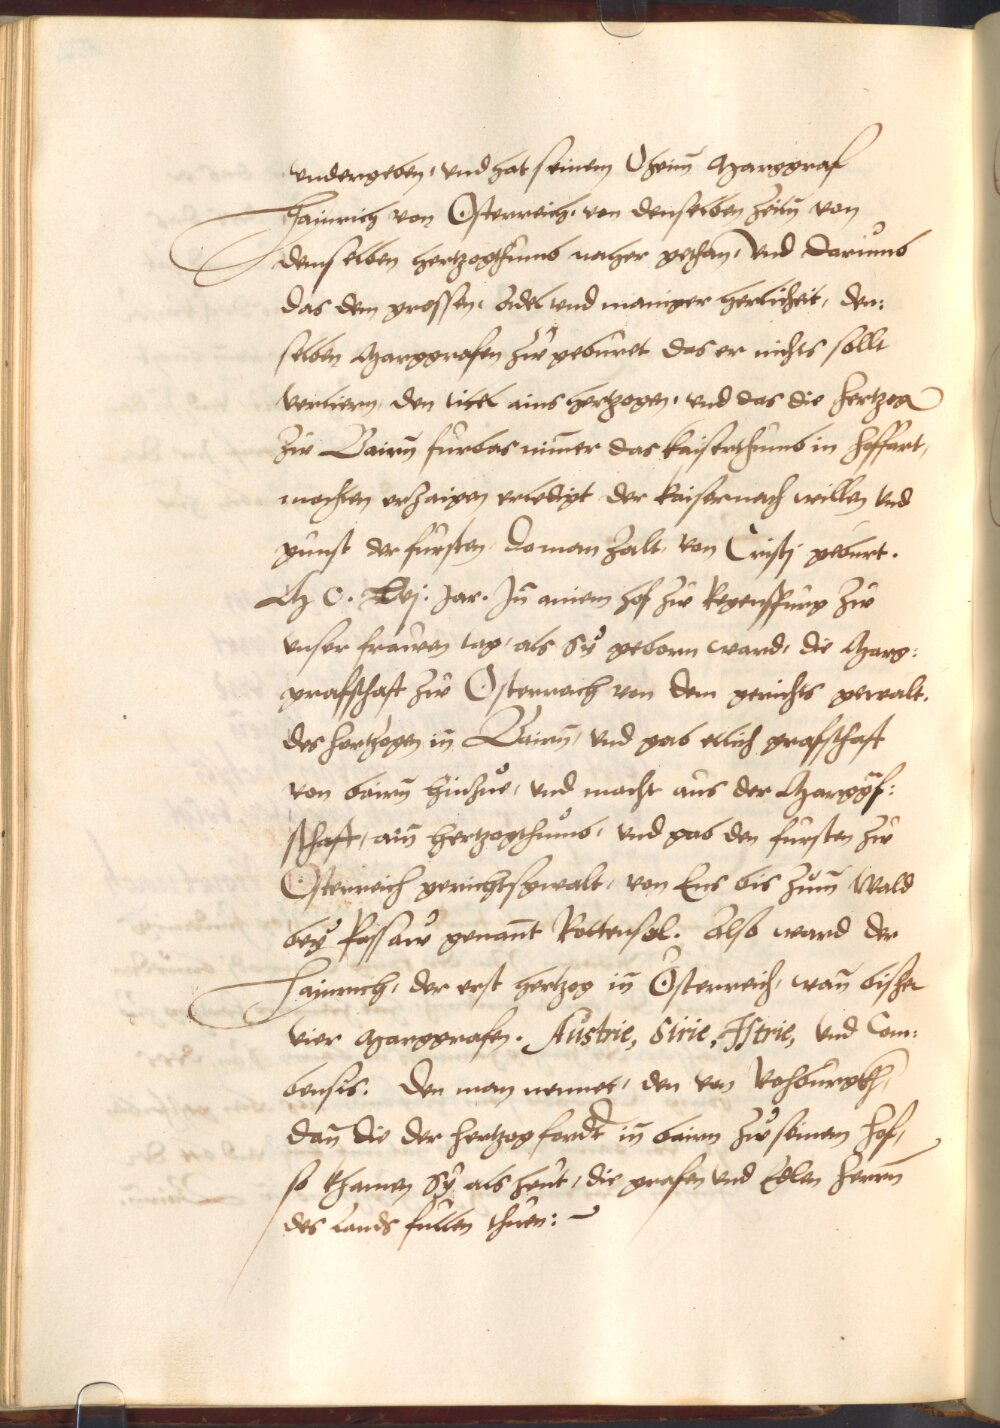 vndergeben, vnd hat seinem Oheim̄ Marggraf
Hainrich von Osterreich, von denselben zeitn̄ von
demselben hertzogthumb nacher gethan, Vnd darumb
das dem grossen, Adel vnd maniger herlicheit, den:
selben Marggrafen zw geburet das er nichts sollt
verliern, den titel ains hertzogen, vnd das die hertzog
zw Bairn̄ fŭrbas nim̄er das kaiserthumb in hoffart,
mochten erzaigen erledigt der kaiser nach willen vnd
gunst der fursten, do man zalt, von Cristj geburt.
M C. Lvj. Jar. Jn̄ ainem hof zw Regenspurg zw
vnser frawen tag, als Sÿ geborn ward, die Marg:
grafschaft zw Osterreich von dem gerichts gewalt,
des hertzogen in̄ Bairn̄, vnd gab etlich grafschaft
von bairn̄ hinzue, vnd macht aus der Marggf̄:
schaft, ain̄ hertzogthumb, vnd gab den fursten zw
Osterreich gerichtsgwalt, von Ens bis zum̄ Wald
beÿ Passaw genan̄t Rottensal. Also ward der
Hainrich, der erst hertzog in̄ Osterreich, wan̄ bisher
vier Marggrafen. Austrie, Stirie, Jstrie, Vnd Com:
bensis. Den man nennet, den von Vohburgkh,
dan̄ die der hertzog fordt in̄ bairn zw seinem hof,
so khamen Sÿ als heut, die grafen vnd Edlen herrn̄
des Lands sullen thuen: ~